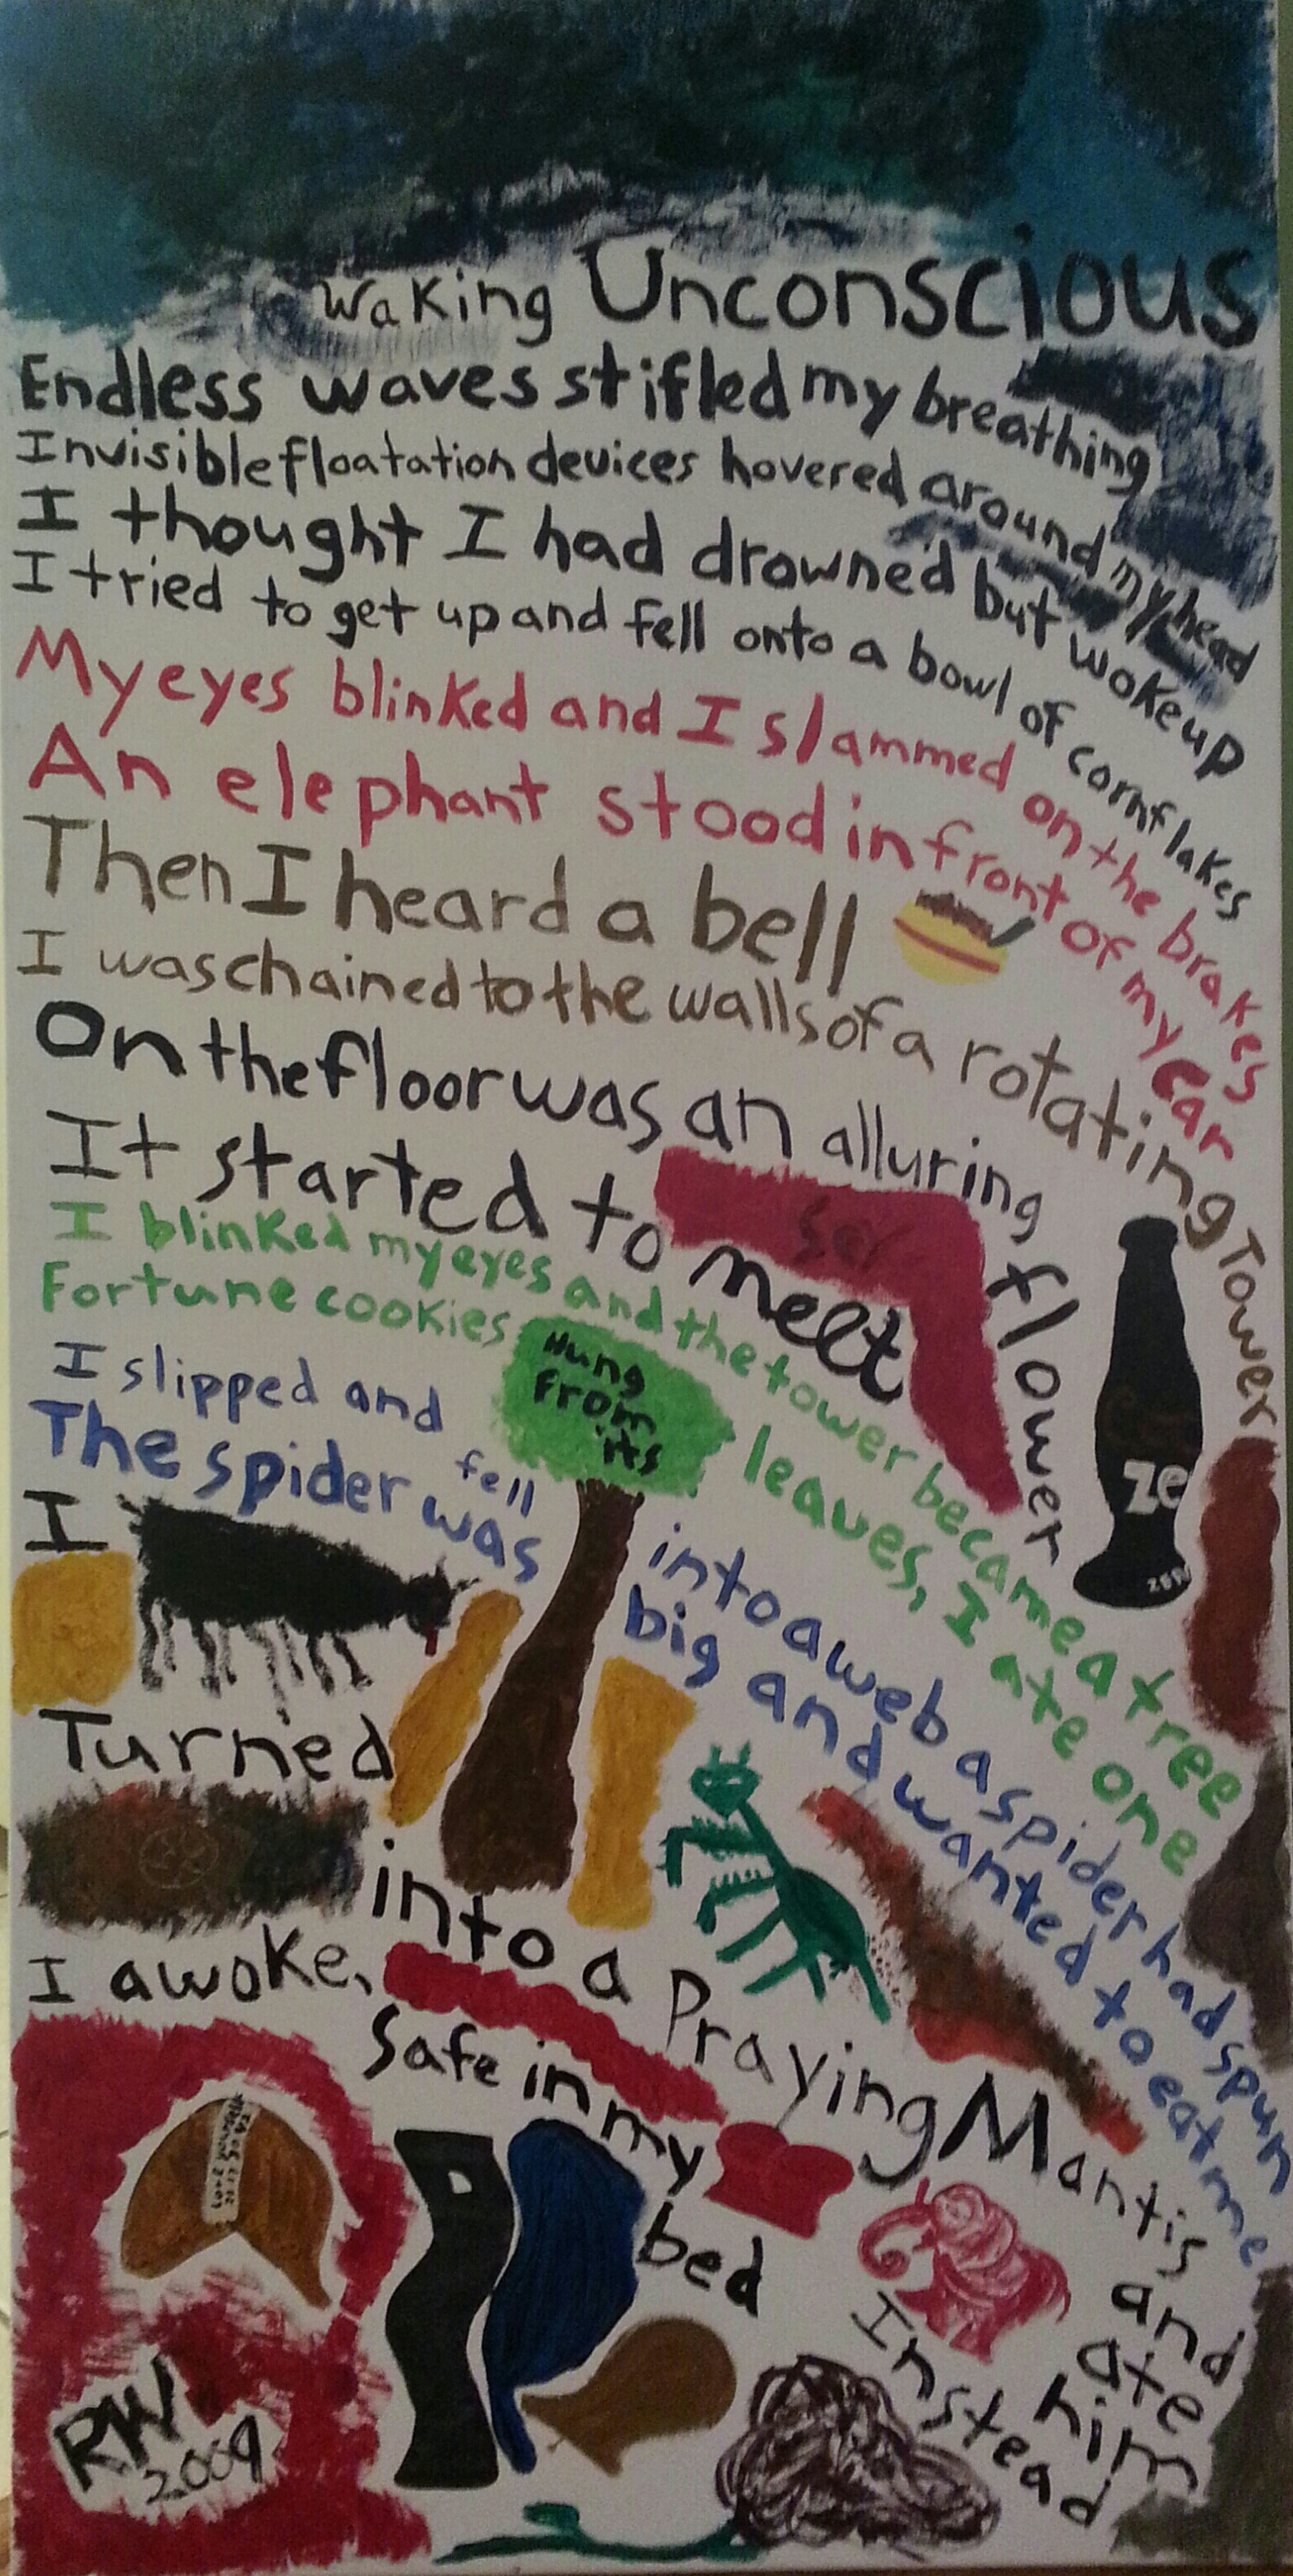 Waking Unconscious
Endless waves stifled my breathing
Invisible floatation devices hovered around my head
I thought I had drowned but woke up
I tried to get up and fell onto a bowl of cornflakes
My eyes blinked and I slammed on the brakes
An elephant stood in front of my car
Then I heard a bell
I was chained to the walls of a rotating Tower
On the floor was an alluring flower
It started to melt
I blinked my eyes and the tower became a tree
Fortune cookies Hung From its leaves, I ate one
I slipped and fell into a web a spider had spun
The spider was big and wanted to eat me
I Turned into a Praying Mantis and ate him Instead
I awoke, Safe in my bed
ze
RW
2009